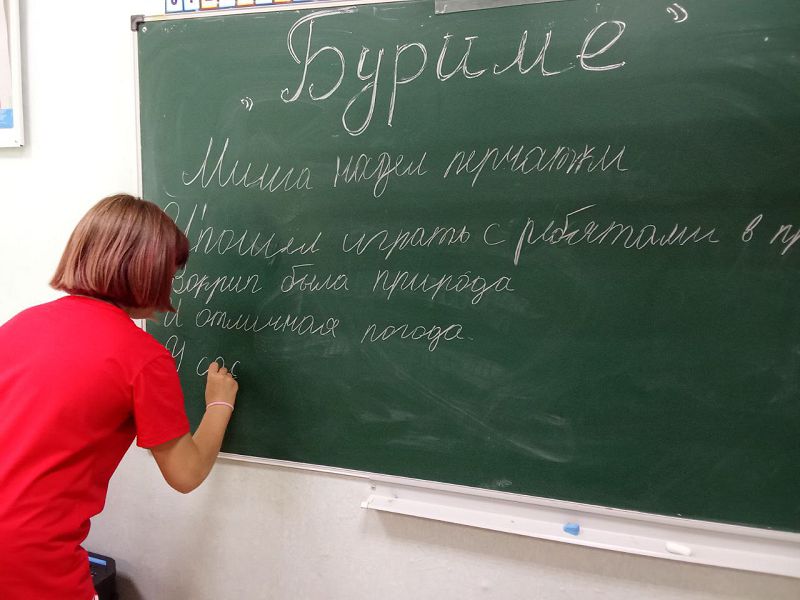 „Буриме"
Миша надел перчатки
И пошел играть с ребятами в пр
Вокруг была природа
И отличная погода.
У сос